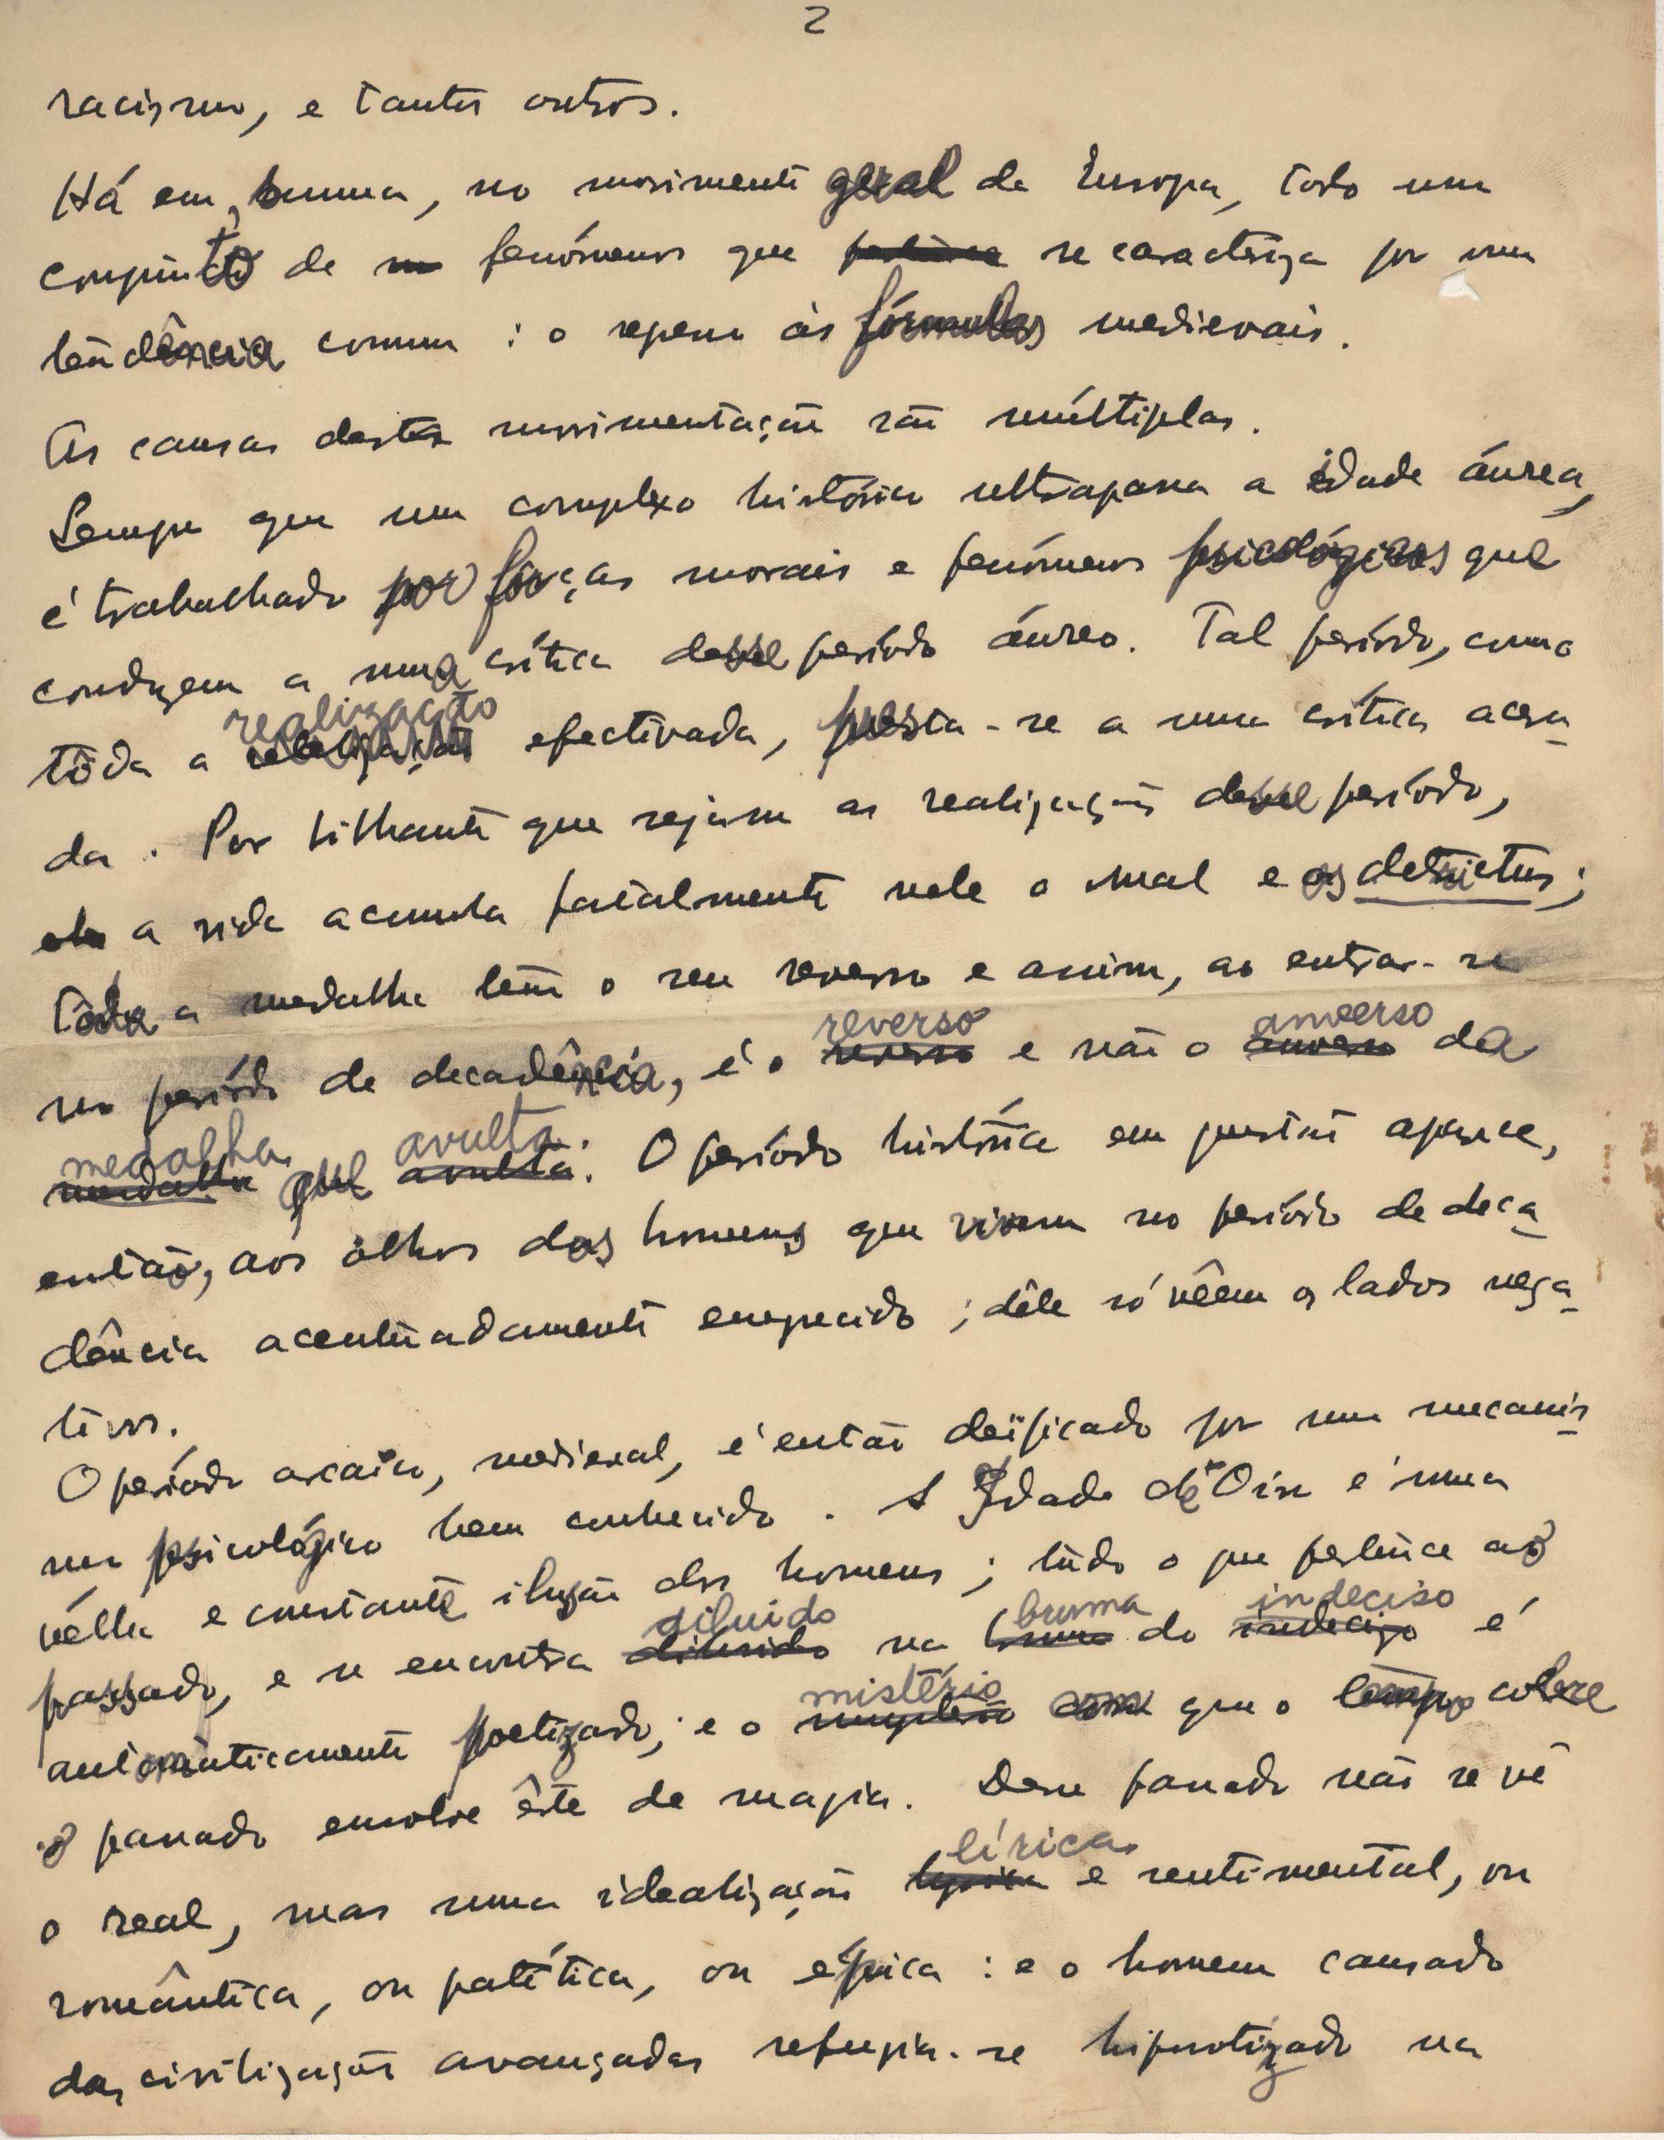 2
racismo, e tantos outros.
Há em summa, no movimento geral da Europa, todo um
conjunto de fenómenos que se caracteriza por uma
tendência comum: o regresso às fórmulas medievais.
As causas desta movimentação são múltiplas.
Sempre que um complexo histórico ultrapassa a idade áurea,
é trabalhado por forças morais e fenómenos psicológicos que
conduzem a uma crítica desse período áureo. Tal período, como
tôda a realização efectivada, presta-se a uma crítica acera-
da. Por brilhantes que sejam as realizações desse período,
a vida acumula fatalmente nele o mal e os detrictus;
Toda a medalha tem o seu reverso e assim, ao entrar-se
no período de decadência, é o reverso e não o anverso da
medalha que avulta. O período histórico em questão aparece,
então, aos olhos dos homens que vivem no período de deca-
dência acentuadamente enegrecido; dêle só vêem os lados nega-
tivos.
O período arcaico, medieval, é então deïficado por um mecanis-
mo psicológico bem conhecido. A Idade de Oiro é uma
vélha e constante ilusão dos homens; tudo o que pertence ao
passado, e se encontra diluido na bruma do indeciso é
automàticamente poetizado; e o mistério com que o tempo colore
o passado envolve êste de magia. Desse passado não se vê
o real, mas uma idealização lírica e sentimental, ou
romântica, ou patética, ou épica: e o homem cansado
das civilizações avançadas refugia-se hipnotizado na